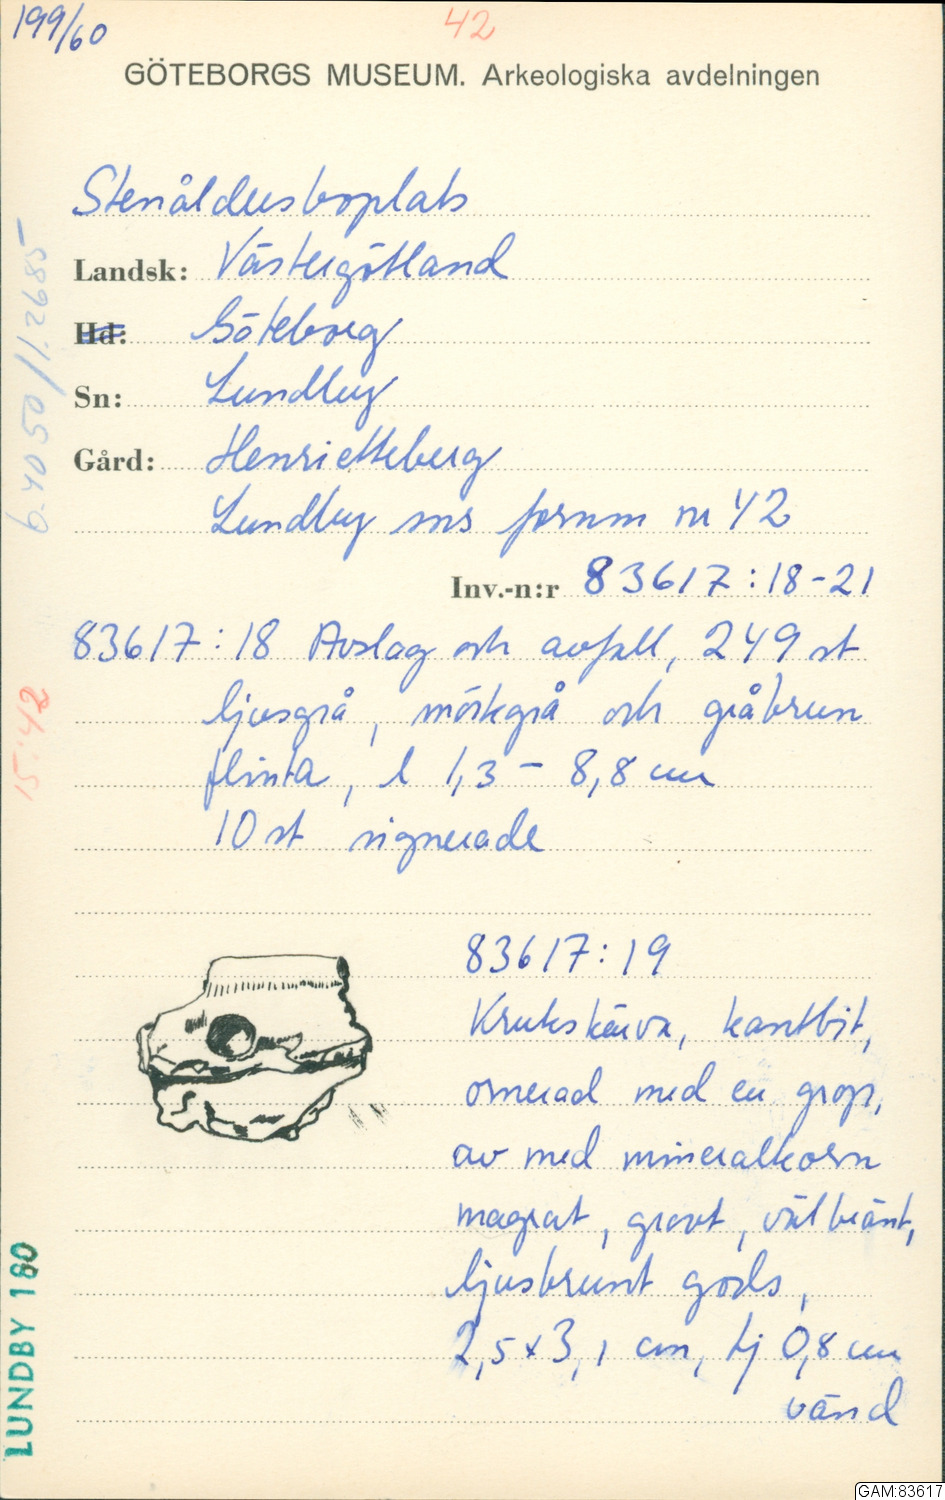 199/60
42
GÖTEBORGS MUSEUM. Arkeologiska avdelningen
Stenåldersboplats
Landsk: Västergötland
Hd: Göteborg
Sn: Lundby
Gård: Henrietteberg
Lundby sns fornm nr 42
Inv.-n:r 83617:18-21
83617:18 Avslag och avfall, 249 st
ljusgrå, mörkgrå och gråbrun
flinta, l 1,3 - 8,8 cm
10 st signerade
83617:19
Krukskärva, kantbit,
ornerad med en grop,
av med mineralkorn
magrat, grovt, välbränt,
ljusbrunt gods,
2,5 x 3,1 cm, tj 0,8 cm
vänd
15:42
LUNDBY 180
GAM:83617